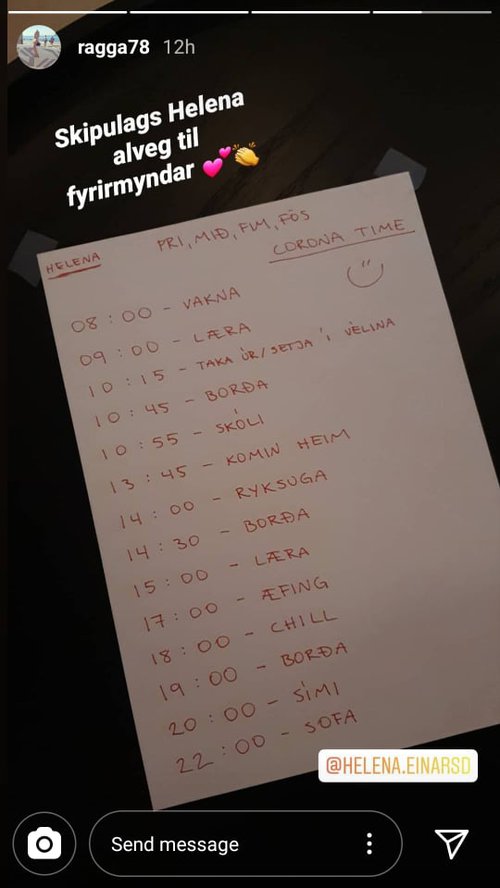 ragga78 12h
Skipulags Helena
alveg til
fyrirmyndar 💕👏
HELENA
ÞRI, MIÐ, FIM, FÖS
CORONA TIME
08:00 - VAKNA
09:00 - LÆRA
10:15 - TAKA ÚR/SETJA Í VÉLINA
10:45 - BORÐA
10:55 - SKÓLI
13:45 - KOMIN HEIM
14:00 - RYKSUGA
14:30 - BORÐA
15:00 - LÆRA
17:00 - ÆFING
18:00 - CHILL
19:00 - BORÐA
20:00 - SÍMI
22:00 - SOFA
@HELENA.EINARSD
Send message